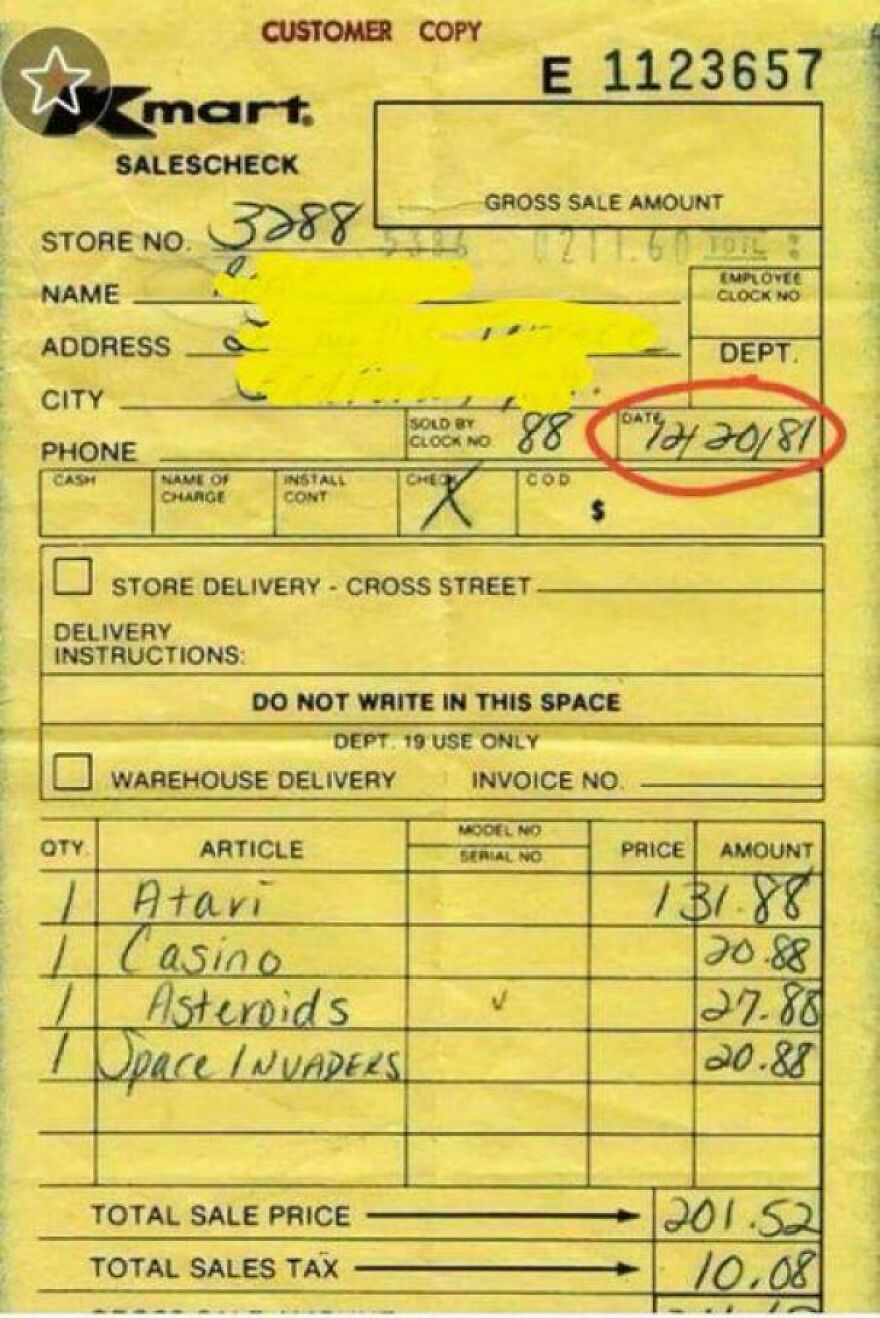 CUSTOMER COPY
E 1123657
Kmart®
SALESCHECK
GROSS SALE AMOUNT
STORE NO. 3288
5386 0211.60 TOTL
NAME
EMPLOYEE CLOCK NO
ADDRESS
DEPT.
CITY
PHONE
SOLD BY CLOCK NO 88
DATE 12/20/81
CASH
NAME OF CHARGE
INSTALL CONT
CHECK X
C O D $
STORE DELIVERY - CROSS STREET
DELIVERY
INSTRUCTIONS:
DO NOT WRITE IN THIS SPACE
DEPT. 19 USE ONLY
WAREHOUSE DELIVERY INVOICE NO.
QTY. ARTICLE MODEL NO SERIAL NO. PRICE AMOUNT
1 Atari 131.88
1 Casino 20.88
1 Asteroids 27.88
1 Space INVADERS 20.88
TOTAL SALE PRICE 201.52
TOTAL SALES TAX 10.08